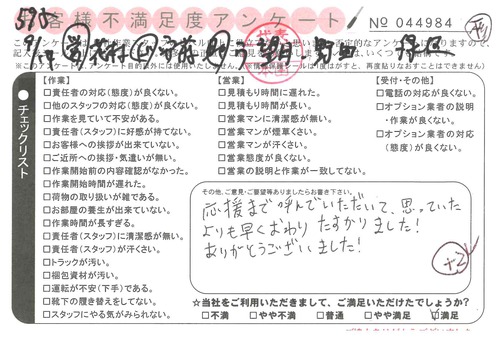 お客様不満足度アンケート
№ 044984
チェックリスト
【作業】
□責任者の対応(態度)が良くない。
□他のスタッフの対応(態度)が良くない。
□作業を見ていて不安がある。
□責任者(スタッフ)に好感が持てない。
□お客様への挨拶が出来ていない。
□ご近所への挨拶・気遣いが無い。
□作業開始前の内容確認がなかった。
□作業開始時間が遅れた。
□荷物の取り扱いが雑である。
□お部屋の養生が出来ていない。
□作業時間が長すぎる。
□責任者(スタッフ)に清潔感が無い。
□責任者(スタッフ)が汗くさい。
□トラックが汚い。
□梱包資材が汚い。
□運転が不安(下手)である。
□靴下の履き替えをしてない。
□スタッフにやる気がみられない。
【営業】
□見積もり時間に遅れた。
□見積もり時間が長い。
□営業マンに清潔感が無い。
□営業マンが煙草くさい。
□営業マンが汗くさい。
□営業態度が良くない。
□営業の説明と作業が一致してない。
【受付・その他】
□電話の対応が良くない。
□オプション業者の説明
・作業が良くない。
□オプション業者の対応
(態度)が良くない。
その他、ご意見・ご要望等ありましたらお書き下さい。
応援まで呼んでいただいて、思っていた
よりも早くおわり たすかりました!
ありがとうございました!
+2
☆当社をご利用いただきまして、ご満足いただけたでしょうか?
□不満 □やや不満 □普通 □やや満足 ☑満足